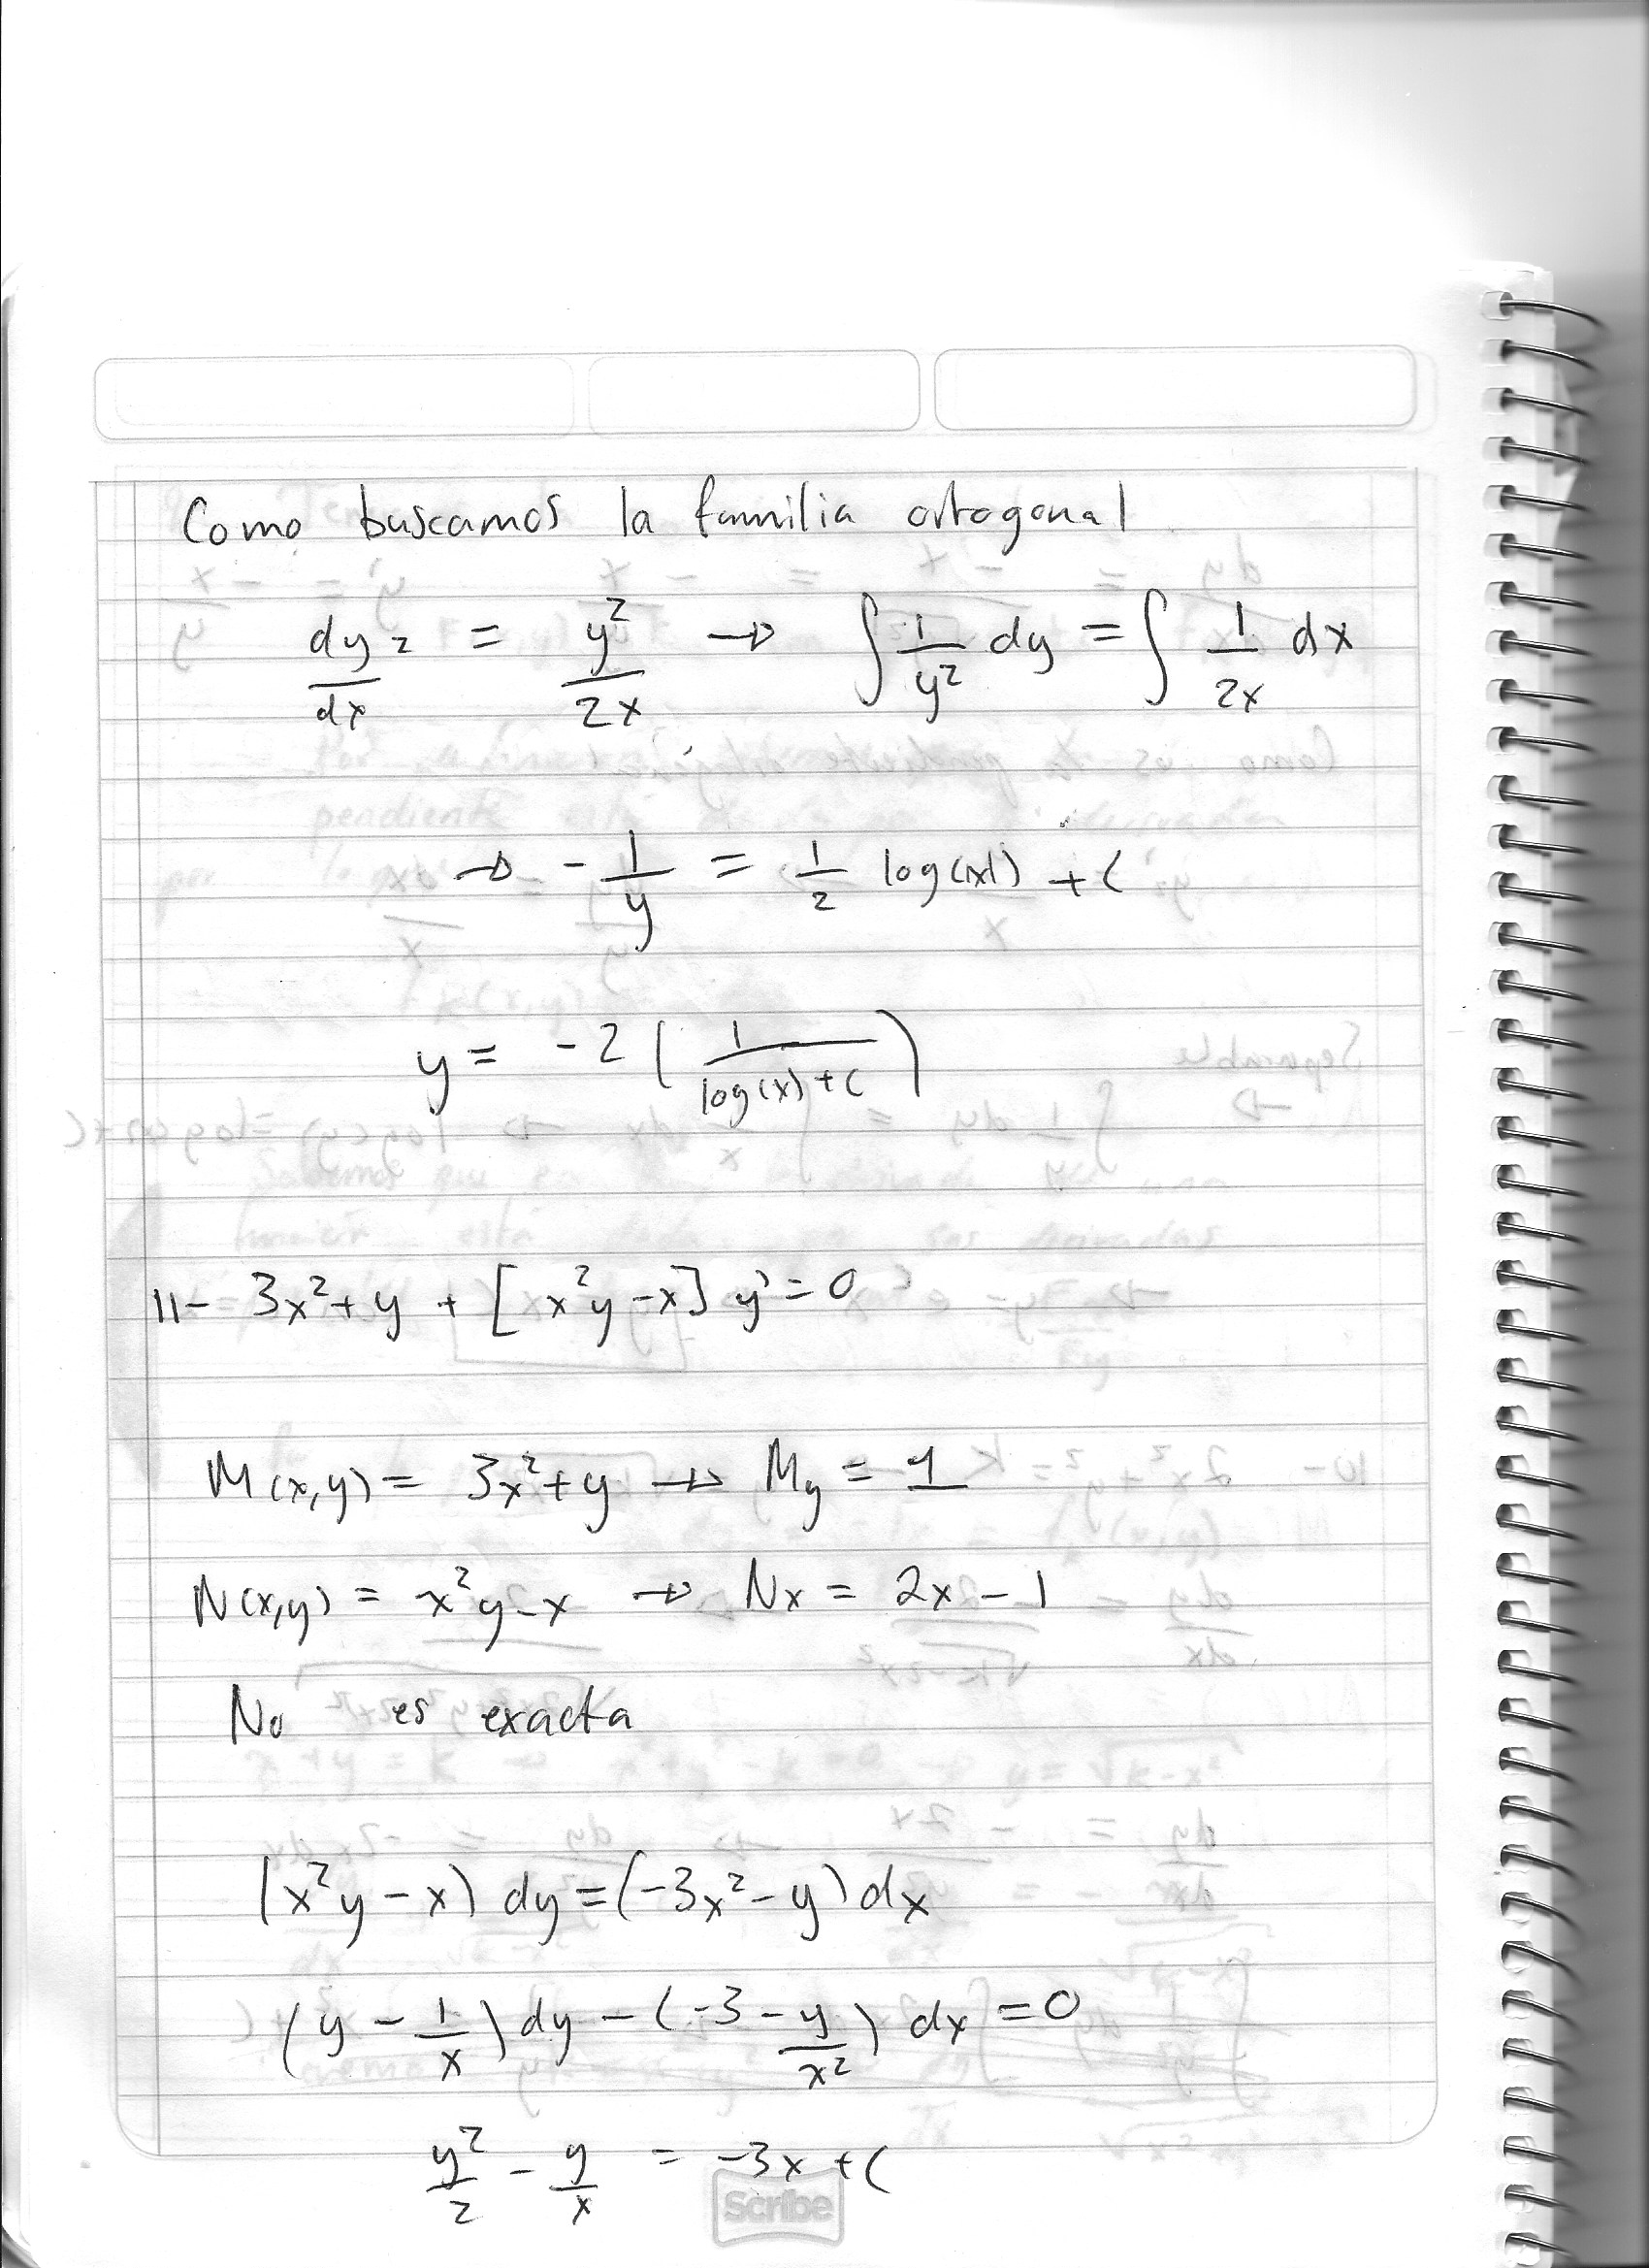 Como buscamos la familia ortogonal
dy2/dx = y²/2x → ∫ 1/y² dy = ∫ 1/2x dx
→ - 1/y = 1/2 log(|x|) + C
y = -2 ( 1/log(x)+C )
11- 3x²+y + [x²y-x] y' = 0
M(x,y) = 3x²+y → My = 1
N(x,y) = x²y-x → Nx = 2x-1
No es exacta
(x²y-x) dy = (-3x²-y) dx
(y - 1/x) dy - (-3 - y/x²) dx = 0
y²/2 - y/x = -3x + C
Scribe